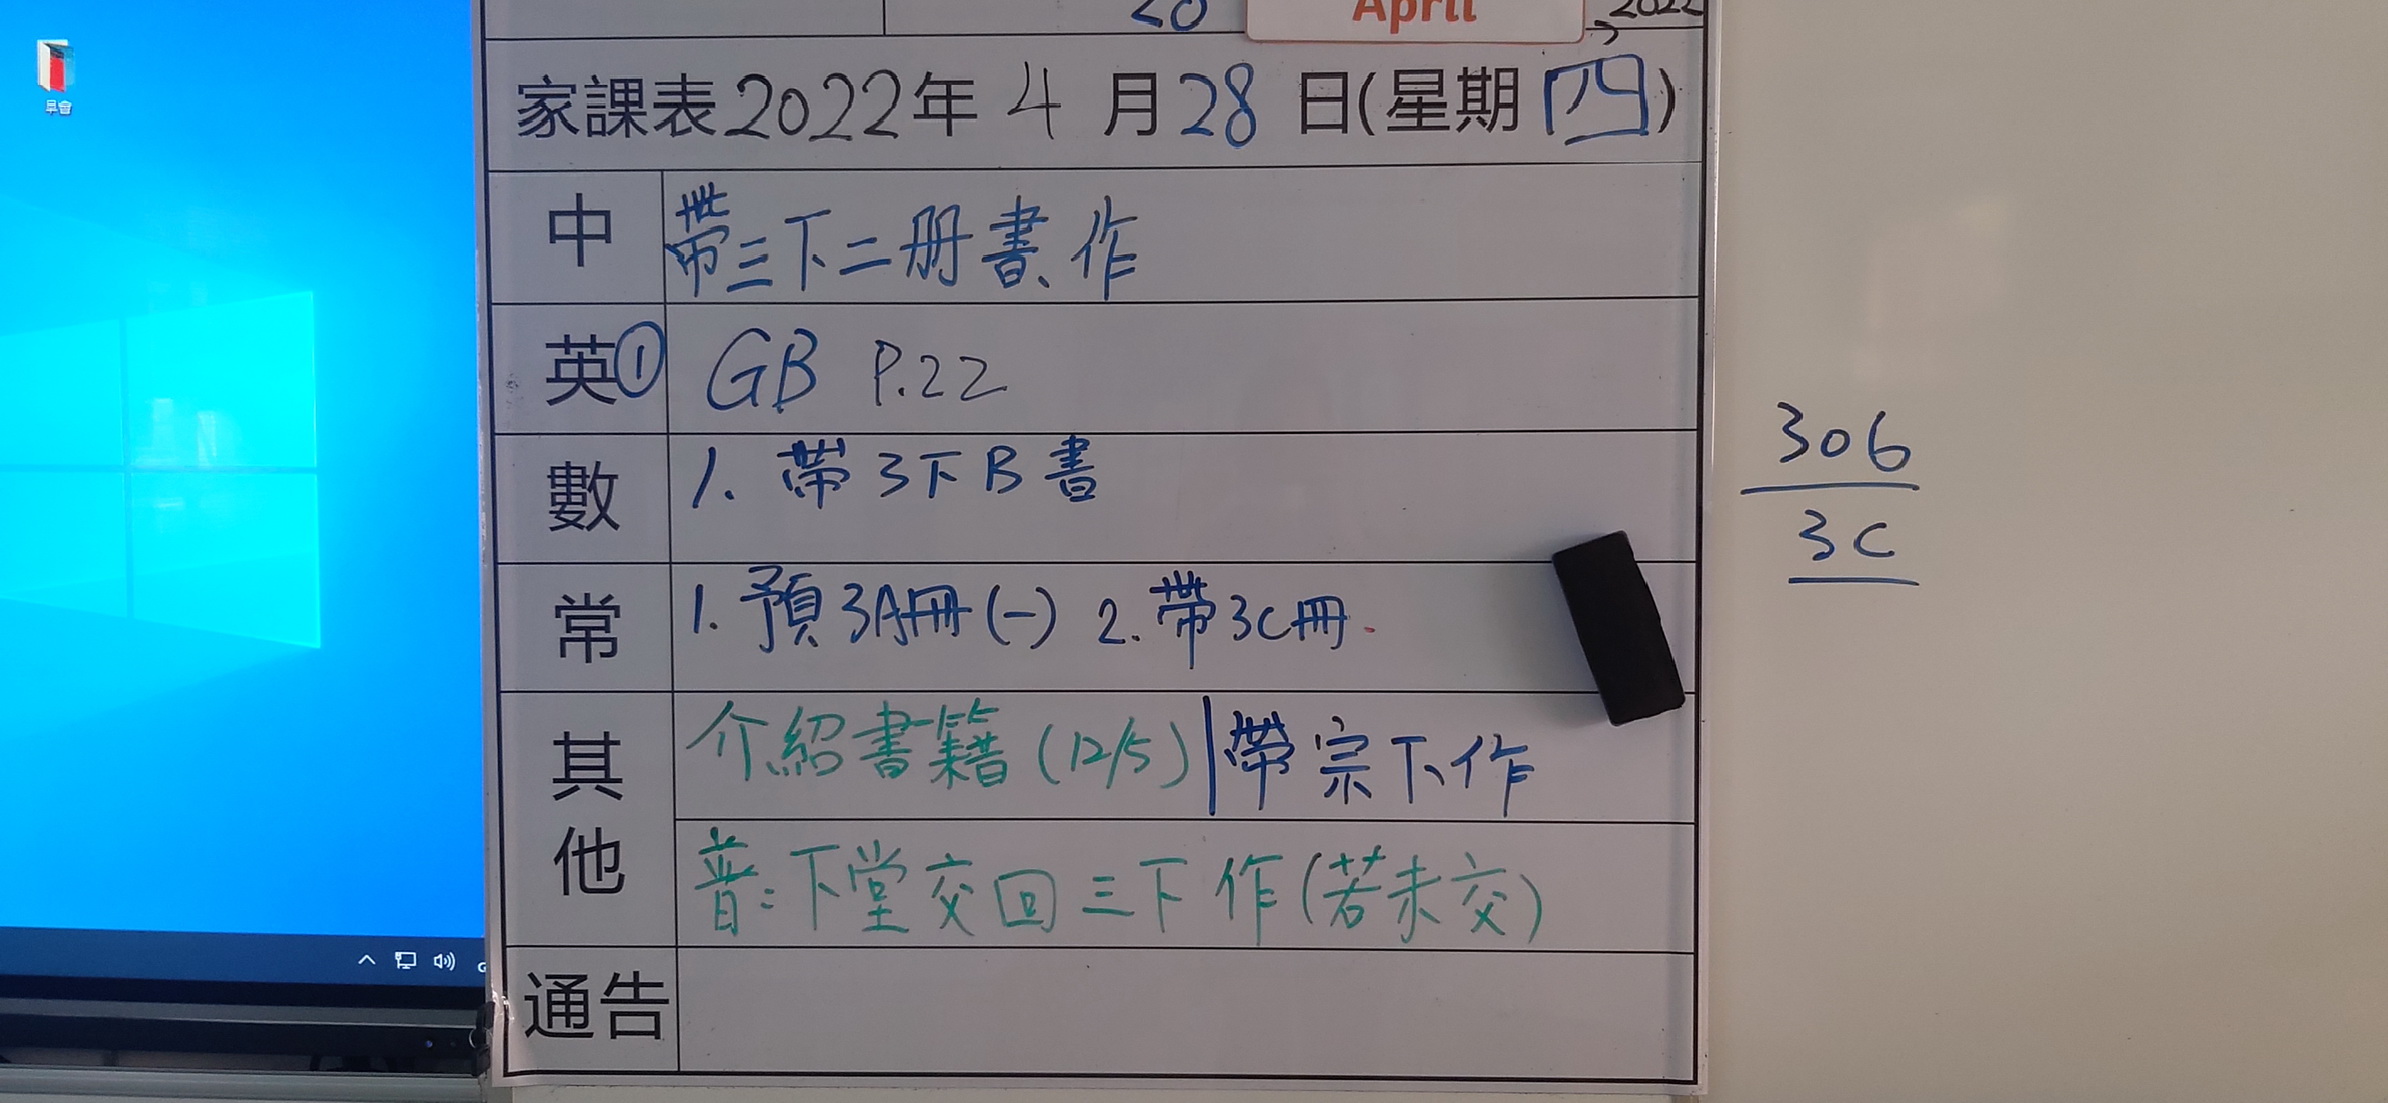 28 April 2022
家課表2022年 4 月 28 日(星期四)
中 帶三下二册書、作
英① GB P.22
數 1. 帶3下B書
常 1. 預3A冊(一) 2. 帶3C冊.
其他 介紹書籍(12/5) | 帶宗下作
普:下堂交回三下作(若未交)
通告
306
3C
早會